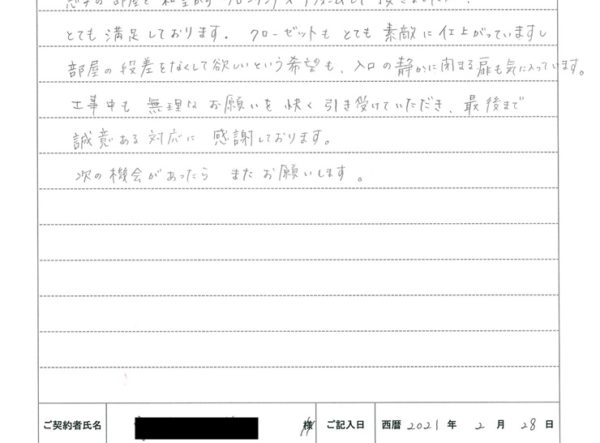 とても満足しております。クローゼットもとても素敵に仕上がっていますし
部屋の段差をなくして欲しいという希望も、入口の静かに閉まる扉も気に入っています。
工事中も無理なお願いを快く引き受けていただき、最後まで
誠意ある対応に感謝しております。
次の機会があったらまたお願いします。
ご契約者氏名 様 ご記入日 西暦 2021 年 2 月 28 日